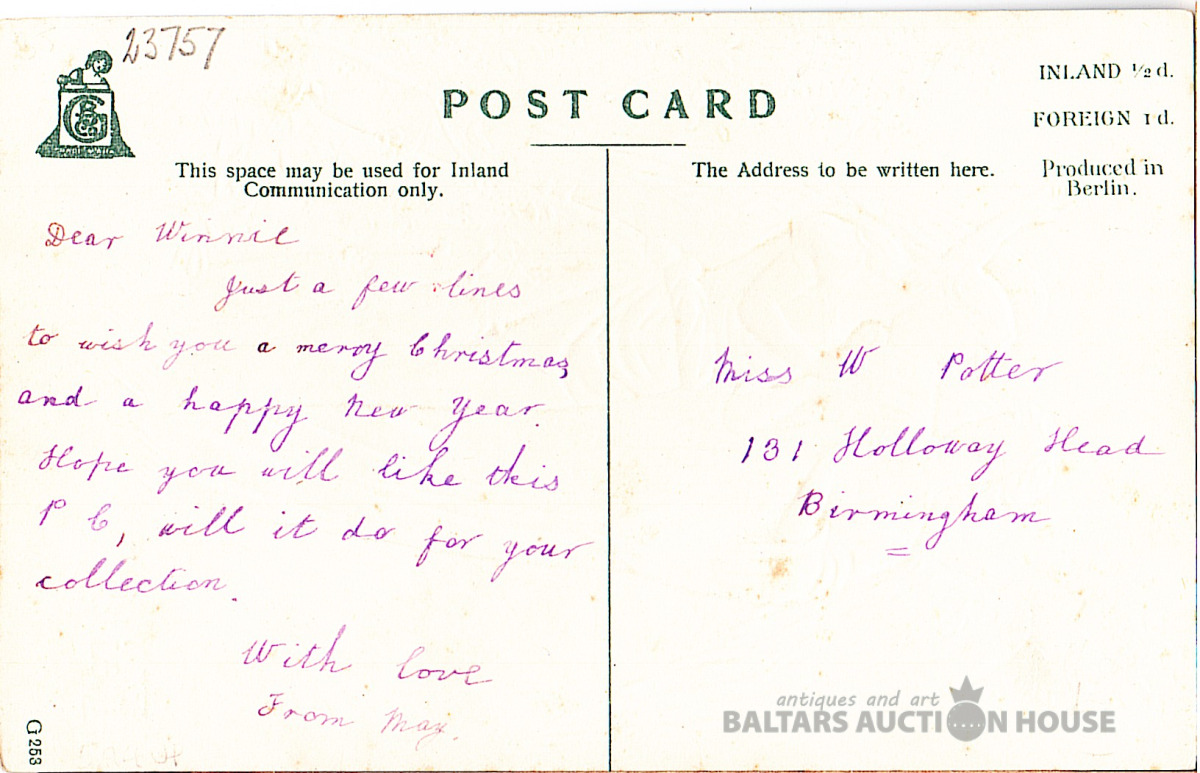 23757
POST CARD
INLAND ½ d.
FOREIGN 1 d.
Produced in
Berlin.
This space may be used for Inland
Communication only.
The Address to be written here.
Dear Winnie
Just a few lines
to wish you a merry Christmas
and a happy New Year.
Hope you will like this
P C, will it do for your
collection.
With love
From May.
Miss W Potter
131 Holloway Head
Birmingham
G 253
antiques and art
BALTARS AUCTION HOUSE